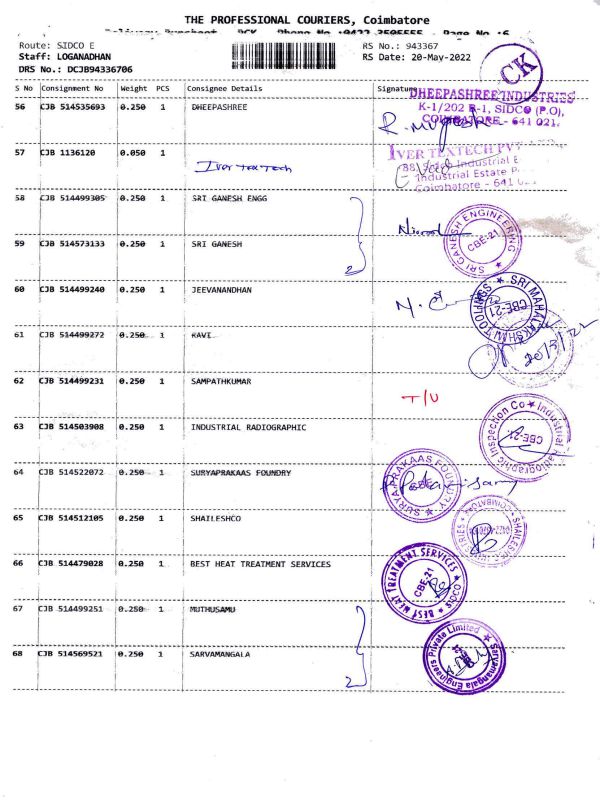 THE PROFESSIONAL COURIERS, Coimbatore
Route: SIDCO E
RS No.: 943367
Staff: LOGANADHAN
RS Date: 20-May-2022
DRS No.: DCJB94336706
CK
S No Consignment No Weight PCS Consignee Details Signature
DHEEPASHREE INDUSTRIES
K-1/202 B-1, SIDCO (P.O),
COIMBATORE - 641 021.
56 CJB 514535693 0.250 1 DHEEPASHREE
57 CJB 1136120 0.050 1
Iver textech
IVER TEXTECH PVT
Industrial E
Industrial Estate P.
Coimbatore - 641
58 CJB 514499305 0.250 1 SRI GANESH ENGG
59 CJB 514573133 0.250 1 SRI GANESH
2
SRI GANESH ENGINEERING
CBE-21
60 CJB 514499240 0.250 1 JEEVANANDHAN
SRI MAHALAKSHMI TOOLINGS
CBE-21
61 CJB 514499272 0.250 1 RAVI
62 CJB 514499231 0.250 1 SAMPATHKUMAR
T/U
63 CJB 514503908 0.250 1 INDUSTRIAL RADIOGRAPHIC
Industrial Radiographic Inspection Co
CBE-21
64 CJB 514522072 0.250 1 SURYAPRAKAAS FOUNDRY
SURYAPRAKAAS FOUNDRY
65 CJB 514512105 0.250 1 SHAILESHCO
66 CJB 514479028 0.250 1 BEST HEAT TREATMENT SERVICES
BEST HEAT TREATMENT SERVICES
CBE-21
SIDCO
67 CJB 514499251 0.250 1 MUTHUSAMU
68 CJB 514569521 0.250 1 SARVAMANGALA
2
Sarvamangala Engineers Private Limited